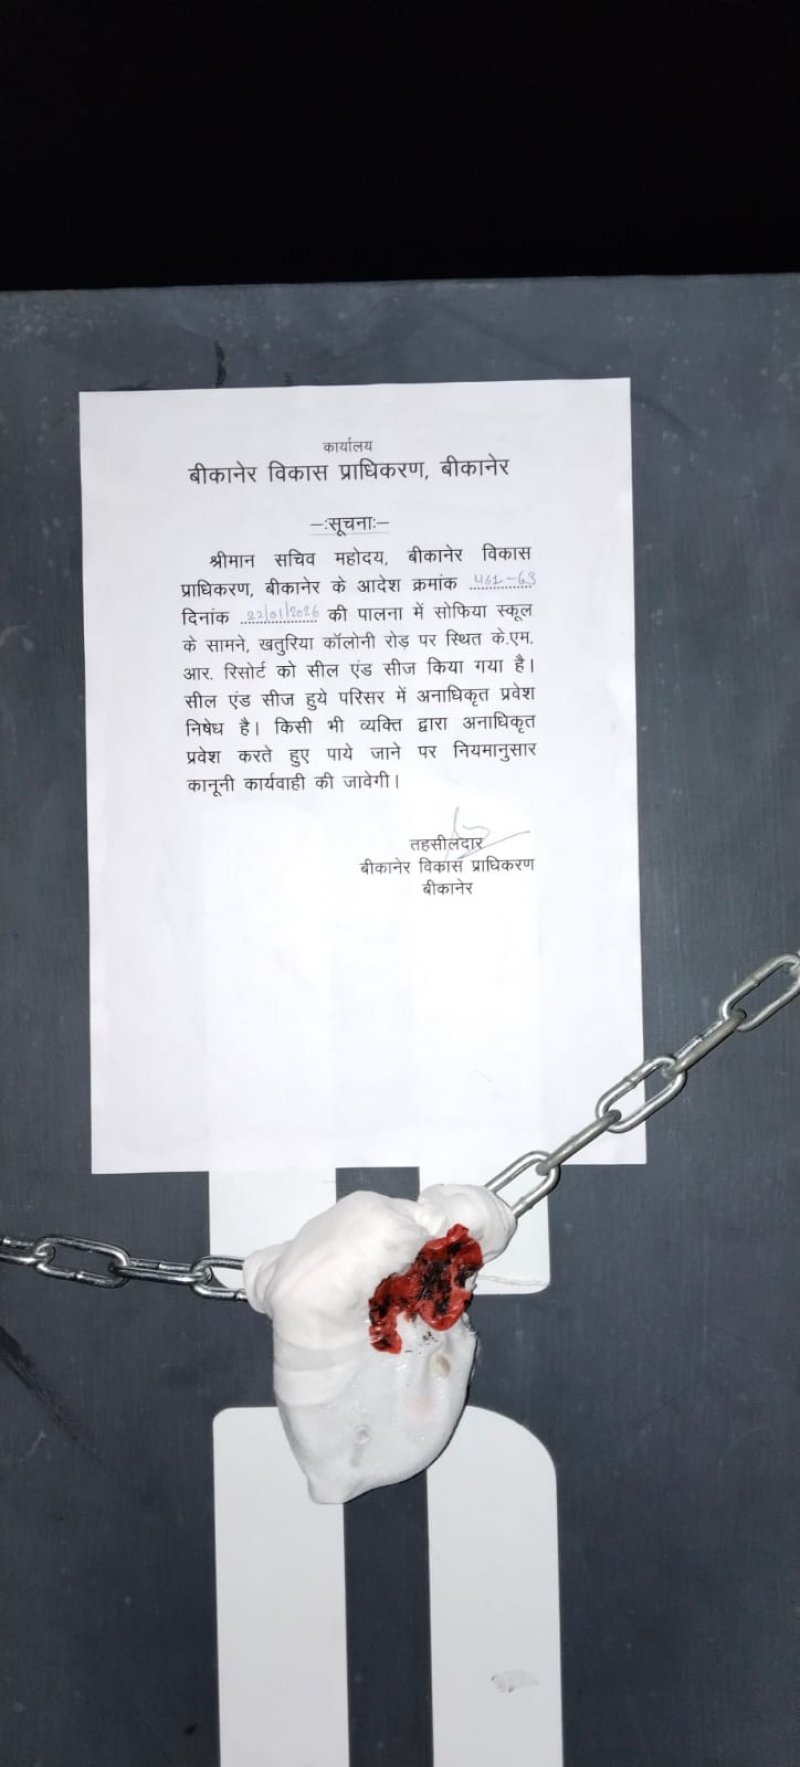 कार्यालय
बीकानेर विकास प्राधिकरण, बीकानेर
–:सूचनाः–
श्रीमान सचिव महोदय, बीकानेर विकास
प्राधिकरण, बीकानेर के आदेश क्रमांक 461-63
दिनांक 22/01/2026 की पालना में सोफिया स्कूल
के सामने, खतुरिया कॉलोनी रोड़ पर स्थित के.एम.
आर. रिसोर्ट को सील एंड सीज किया गया है।
सील एंड सीज हुये परिसर में अनाधिकृत प्रवेश
निषेध है। किसी भी व्यक्ति द्वारा अनाधिकृत
प्रवेश करते हुए पाये जाने पर नियमानुसार
कानूनी कार्यवाही की जावेगी।
तहसीलदार
बीकानेर विकास प्राधिकरण
बीकानेर